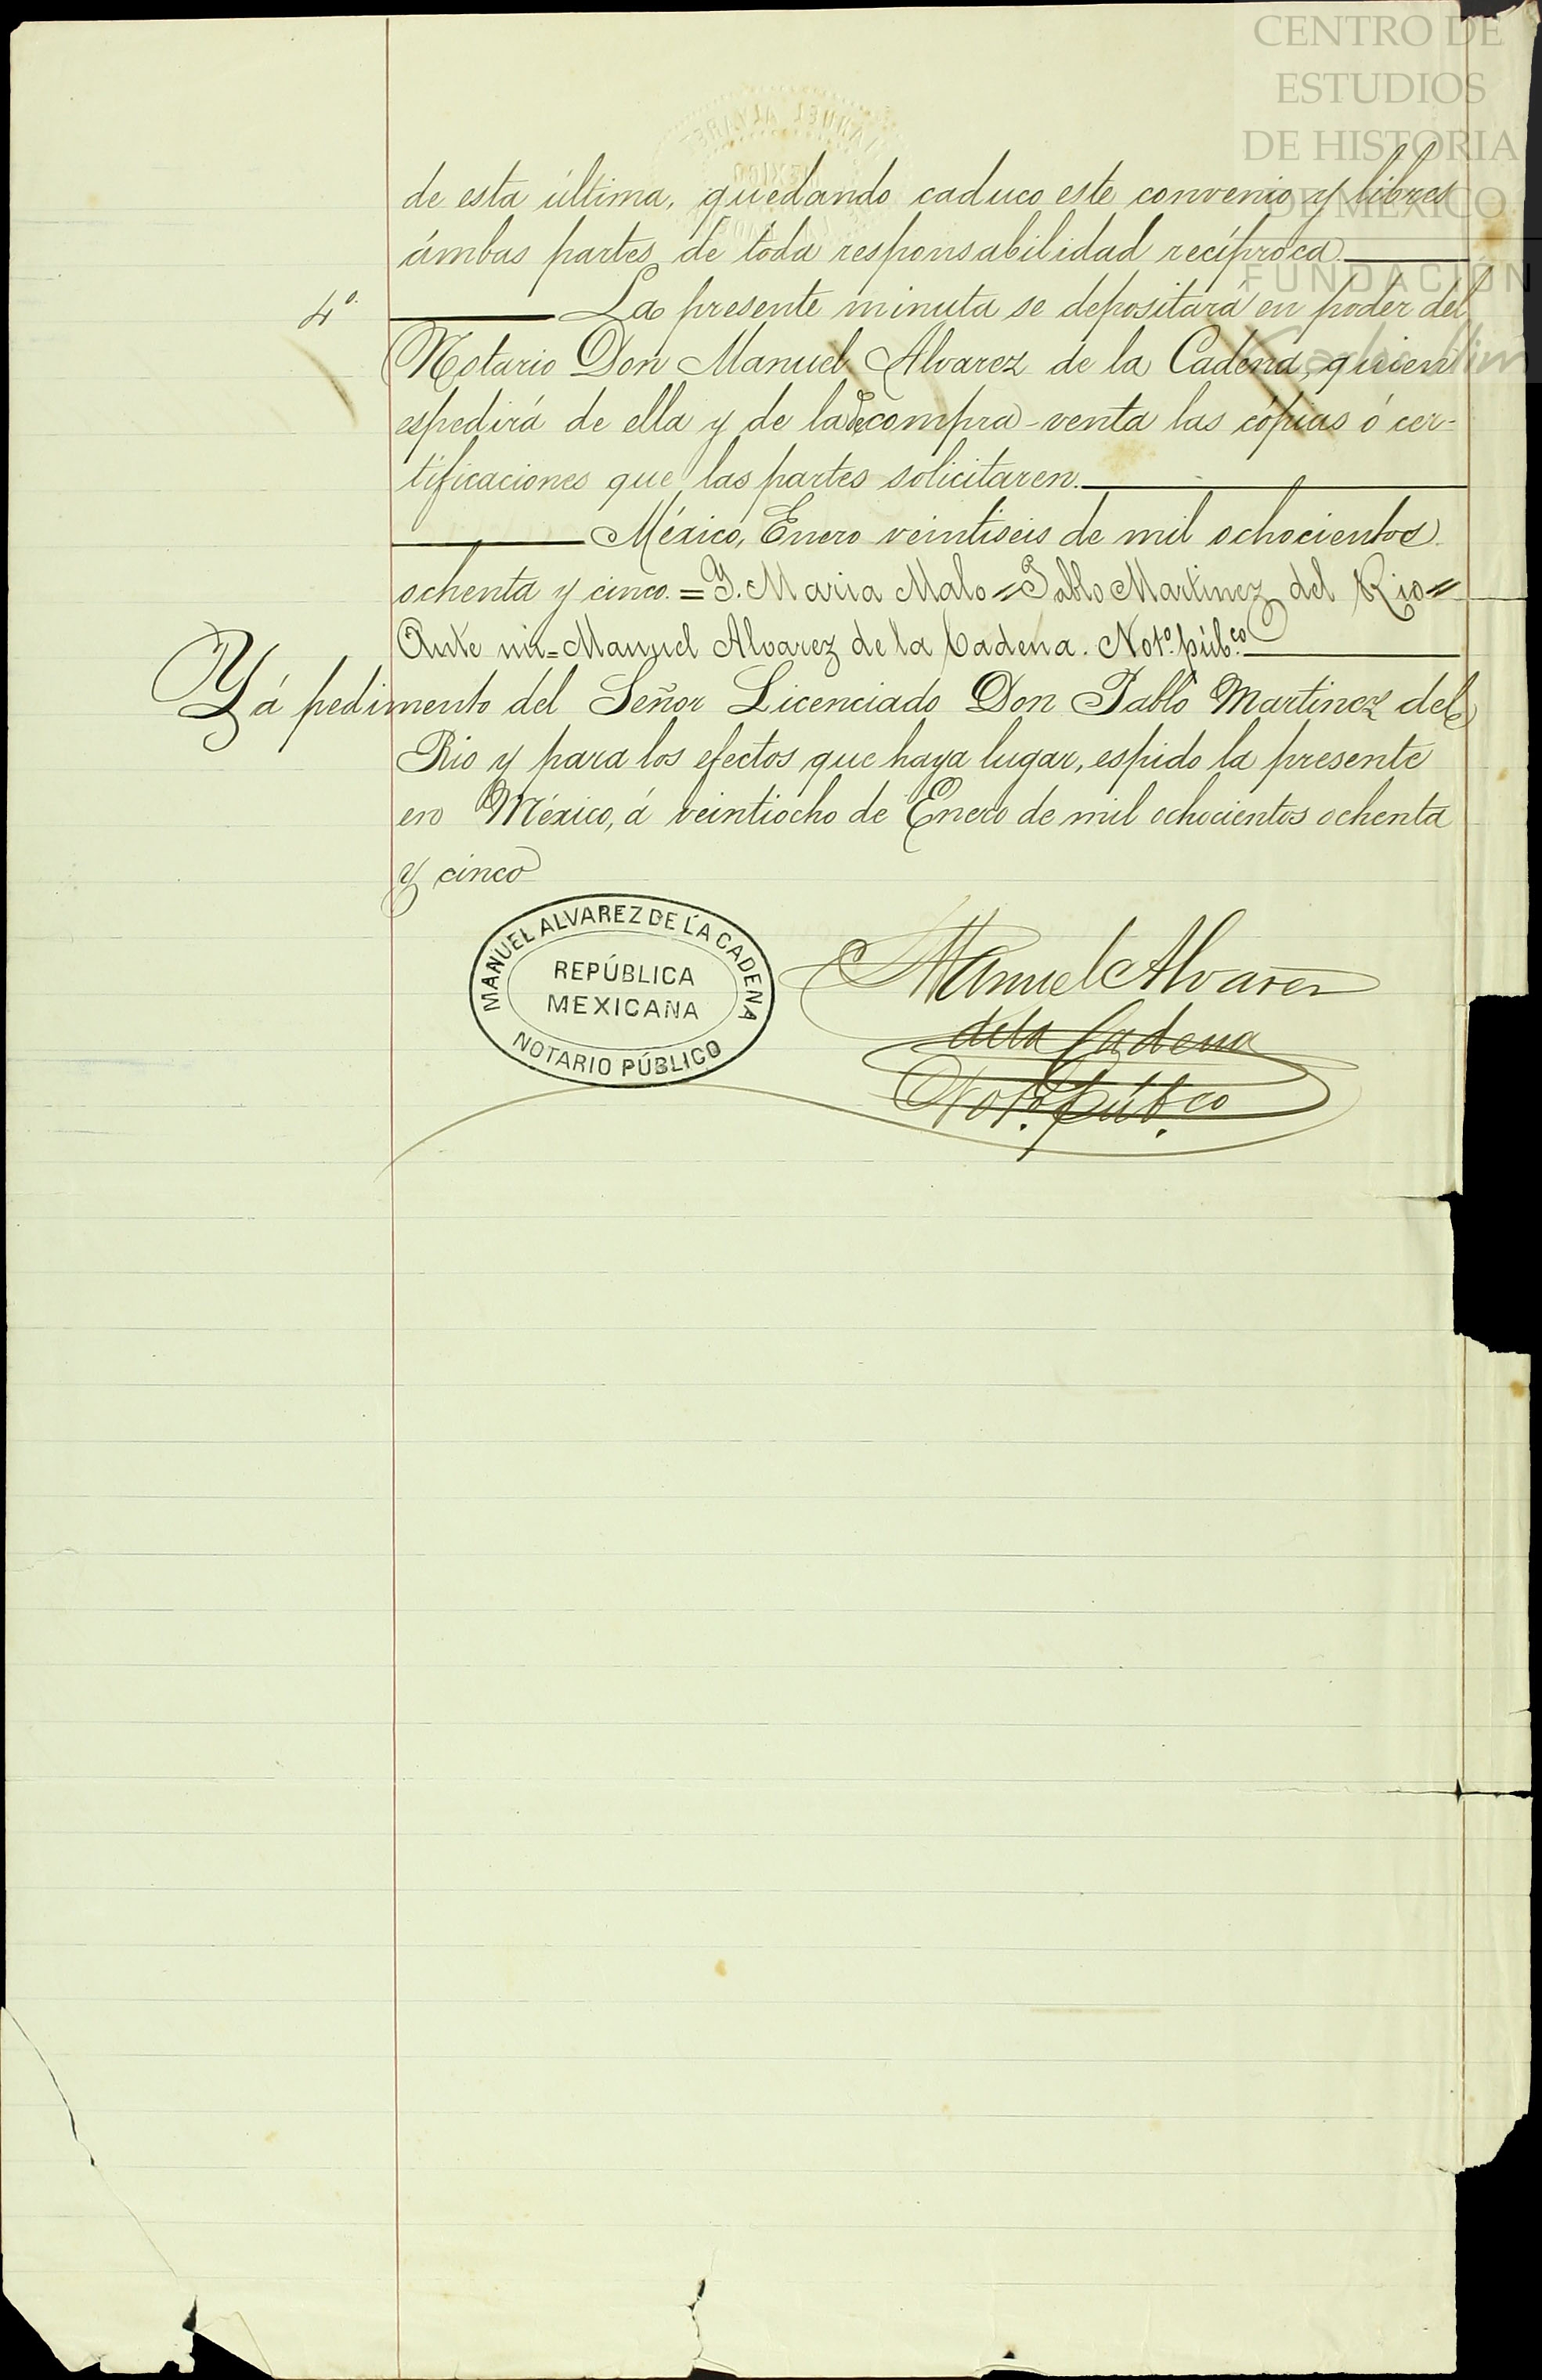 CENTRO DE
ESTUDIOS
DE HISTORIA
DE MÉXICO
FUNDACIÓN
de esta última, quedando caduco este convenio y libres
ámbas partes de toda responsabilidad recíproca.
4º. La presente minuta se depositará en poder del
Notario Don Manuel Alvarez de la Cadena, quien
espedirá de ella y de la de compra-venta las cópias ó cer-
tificaciones que las partes solicitaren.
México, Enero veintiseis de mil ochocientos
ochenta y cinco. = Y. Maria Malo = Pablo Martinez del Rio =
Ante mi = Manuel Alvarez de la Cadena. Notº. púb.co
Y á pedimento del Señor Licenciado Don Pablo Martinez del
Rio y para los efectos que haya lugar, espido la presente
en México, á veintiocho de Enero de mil ochocientos ochenta
y cinco
MANUEL ALVAREZ DE LA CADENA
REPÚBLICA
MEXICANA
NOTARIO PÚBLICO
Manuel Alvarez
de la Cadena
Notº. Púb.co